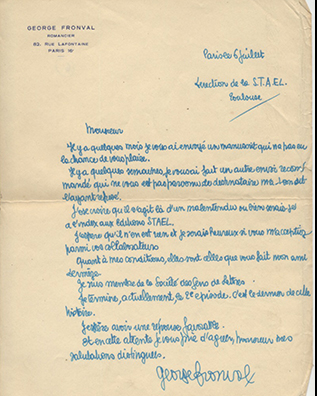 GEORGE FRONVAL
ROMANCIER
92, RUE LAFONTAINE
PARIS 16ᵉ
Paris le 6 Juillet
Direction de la S.T.A.E.L.
Toulouse
Monsieur
Il y a quelques mois je vous ai envoyé un manuscrit qui n'a pas eu
la chance de vous plaire.
Il y a quelques semaines, je vous ai fait un autre envoi recom
mandé qui ne vous est pas parvenu le destinataire
l'ayant refusé.
J'ose croire qu'il s'agit là d'un malentendu ou bien serais-je
à l'index aux Editions STAEL.
J'espère qu'il n'en est rien et je serais heureux si vous m'acceptiez
parmi vos collaborateurs
Quant à mes conditions, elles sont celles que vous fait mon ami
Je suis membre de la Société des Gens de Lettres
Je termine, actuellement, le 2e épisode. c'est le dernier de cette
histoire.
J'espère avoir une réponse favorable.
et en cette attente je vous prie d'agréer, monsieur mes
salutations distinguées.
George Fronval